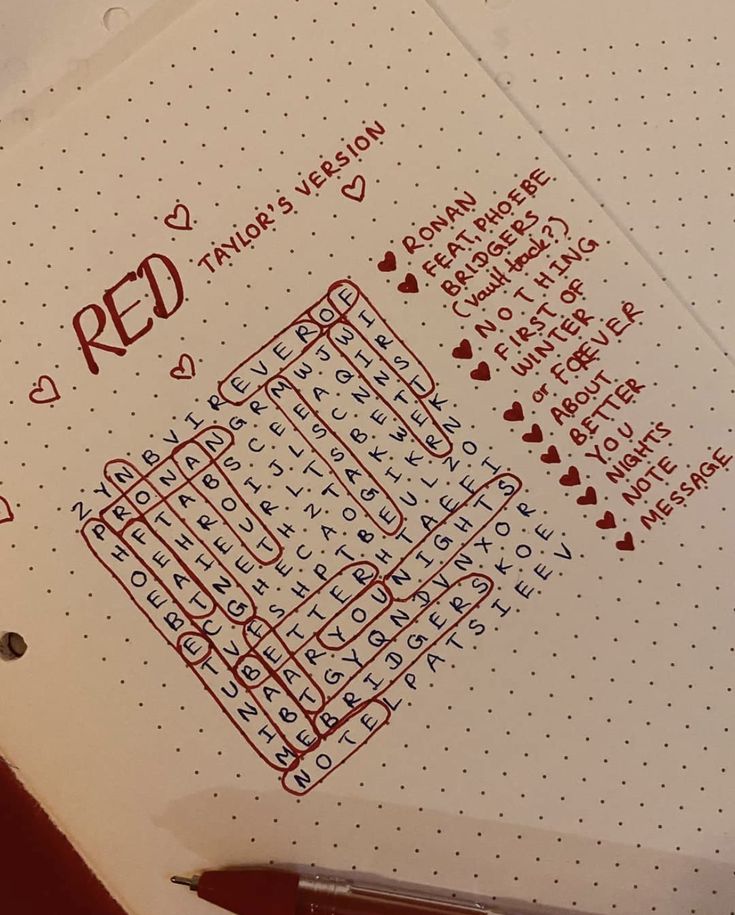 RED TAYLOR'S VERSION
Z Y N B V I R E V E R O F
P R O N A N G R M W J W I
H F T A B S C E E A Q I R
O E H R O I J L S C N N S
E A I E U R L T S B E T T
B T N E T H Z T A K W E K
E C G H E C A O G I K R N
T V F S H P T B E U L N O
U B E T T E R H T A E F I
N A A R Y O U N I G H T S
H B T G Y Q N D V N X O R
M E B R I D G E R S K O E
N O T E L P A T S I E E V
♥ RONAN
♥ FEAT. PHOEBE
BRIDGERS
(vault track?)
♥ NOTHING
♥ FIRST OF
WINTER
♥ or FOREVER
♥ ABOUT
♥ BETTER
♥ YOU
♥ NIGHTS
♥ NOTE
♥ MESSAGE